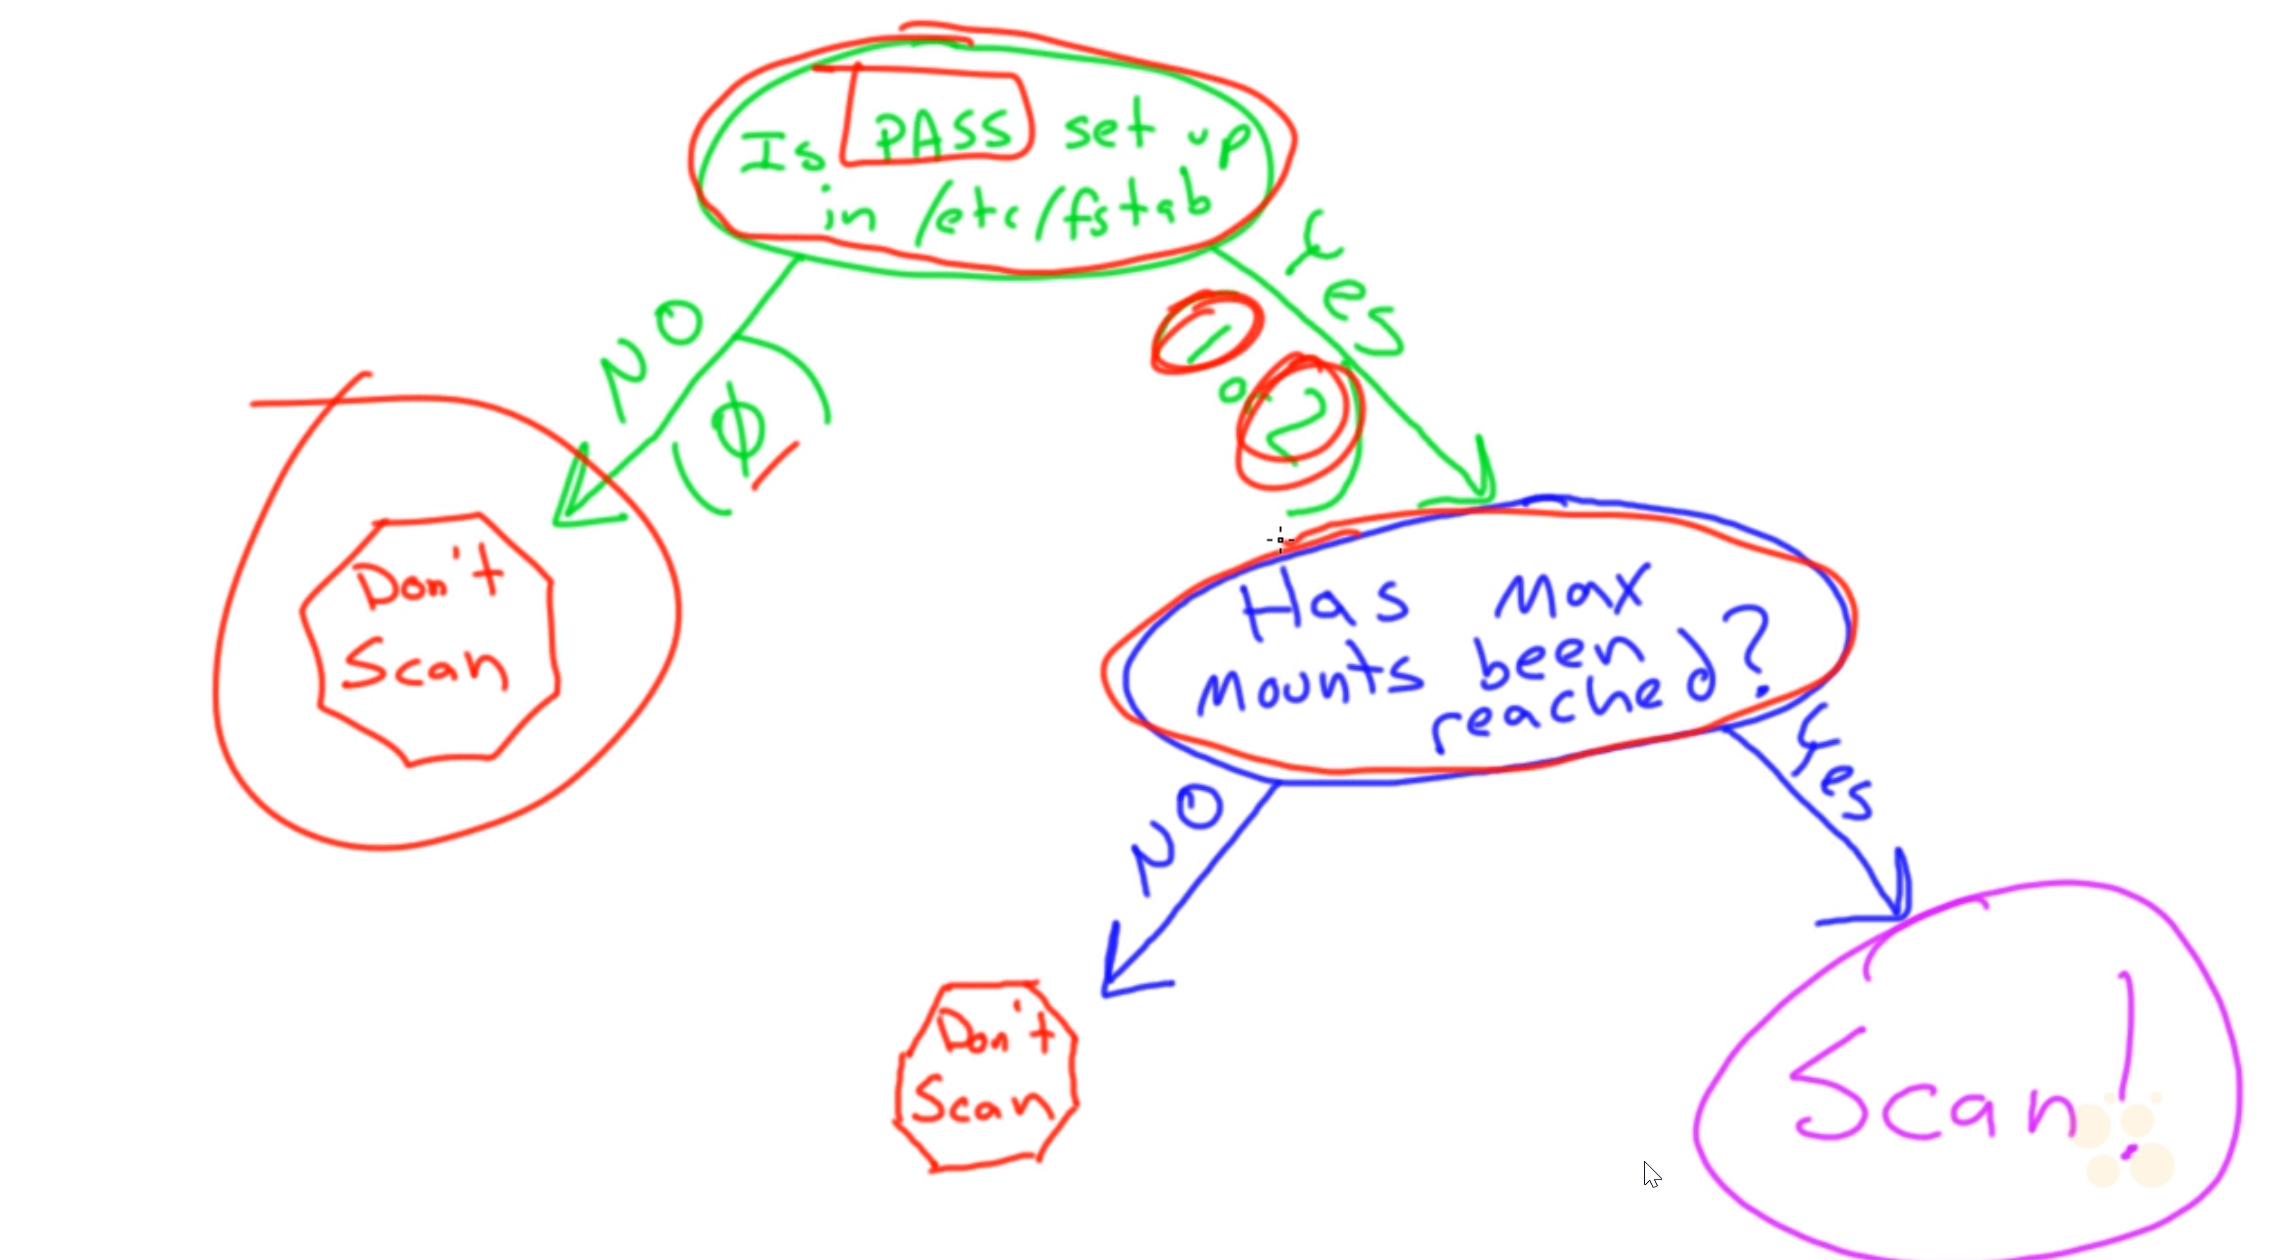 Is PASS set up
in /etc/fstab
NO
(φ)
Yes
1
or 2
Don't
Scan
Has Max
Mounts been
reached?
NO
Yes
Don't
Scan
Scan!